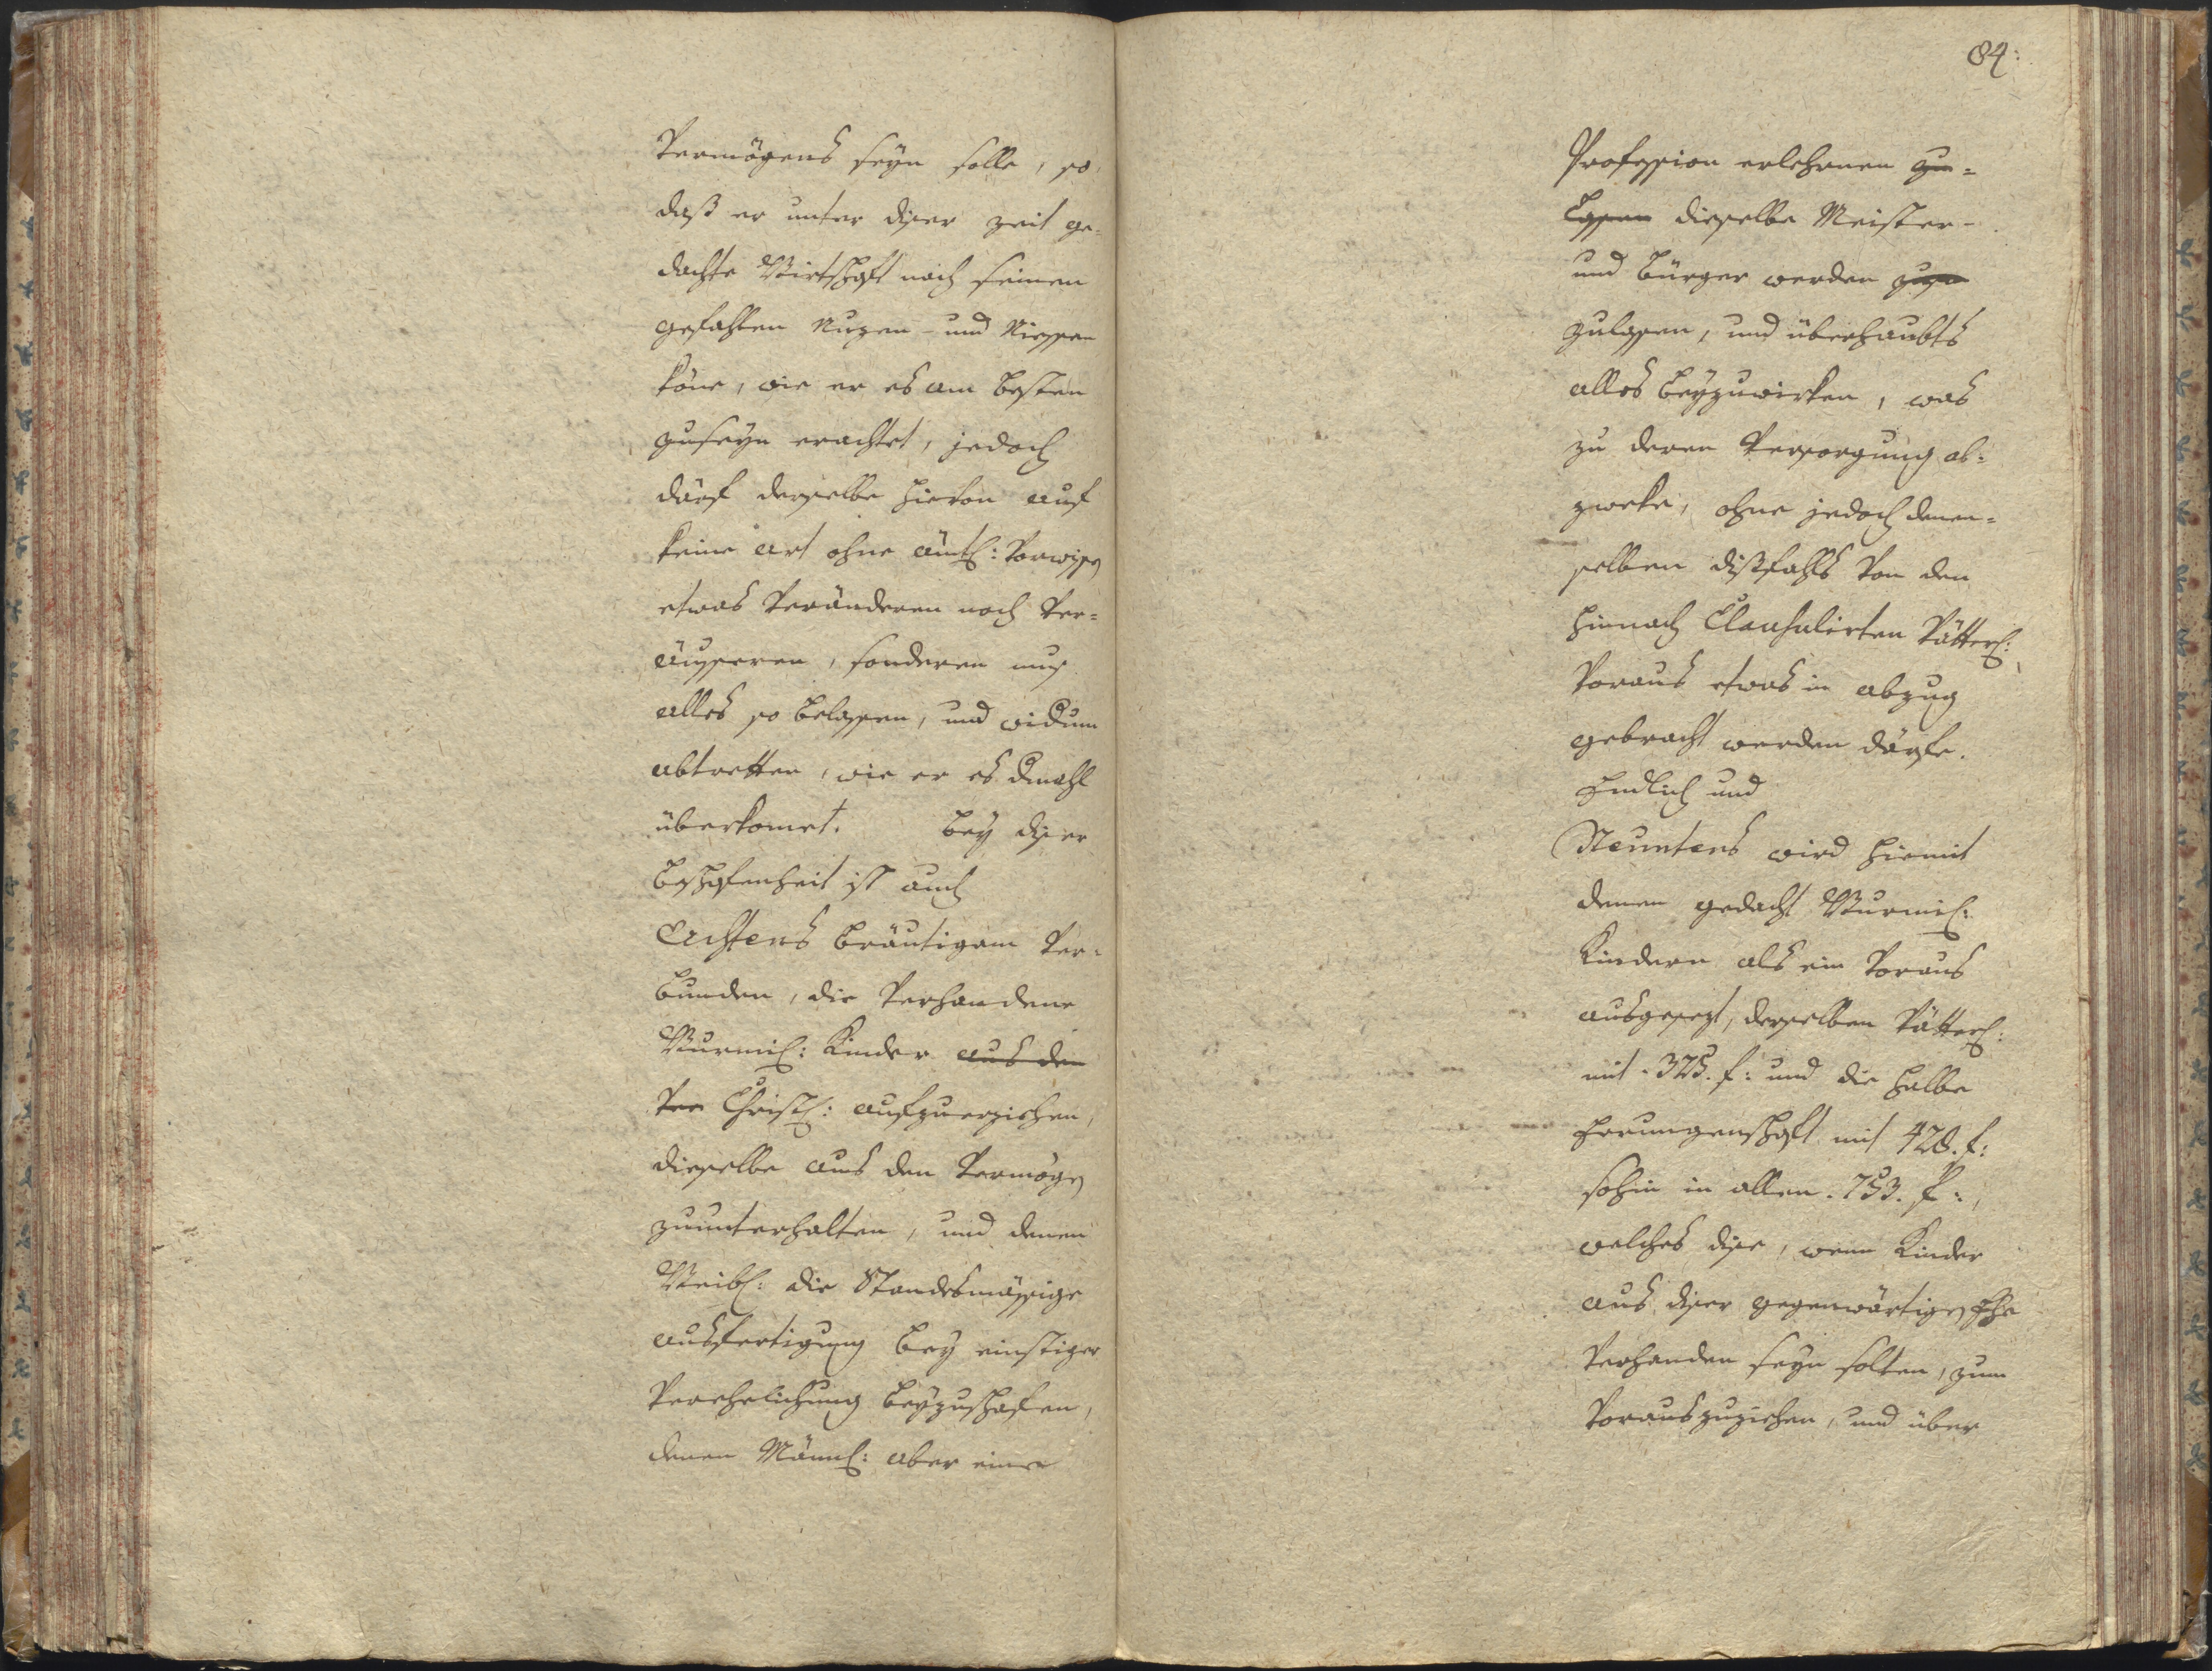 Vermögens seyn solle, so
daß er unter diser zeit ge-
dachte Wirtschaft nach seinen
gefahlen Nuzen- und Niessen
köne, wie er es am besten
zuseyn erachtet, jedoch
därf derselbe hievon auf
keine art ohne ämtl: Vorwissen
etwas Veränderen noch Ver-
äusseren, sonderen nur
alles so belassen, und widum
abtretten, wie er es dmahl
überkomet. Bey diser
beschafenheit ist auch
Achtens bräutigam Ver-
bunden, die Verhandene
Kinder aus den
Ver Christl: aufzuerziehen,
dieselbe aus den Vermögen
zuunterhalten, und denen
Weibl: die Standesmässige
ausfertigung bey einstiger
Verehelichung beyzuschafen,
denen Mänl: aber eine
84:
Profession erlehrnen zu-
lassen dieselbe Meister-
und bürger werden
zulassen, und überhaubts
alles beyzuwirken, was
zu deren Versorgung ab-
zweke, ohne jedoch denen-
selben dißfahls Von den
hienach Clausulirten Vätterl:
Voraus etwas in abzug
gebracht werden därfe.
Endlich und
Neuntens wird hiemit
denen gedacht
Kindern als ein Voraus
ausgesezt, derselben Vätterl:
mit 325. f: und die halbe
Errungenschaft mit 428. f:
sohin in allen. 753. f:,
welches dise, wenn Kinder
aus diser gegenwärtigen Ehe
Verhanden seyn solten, zum
Vorauszuziehen, und über